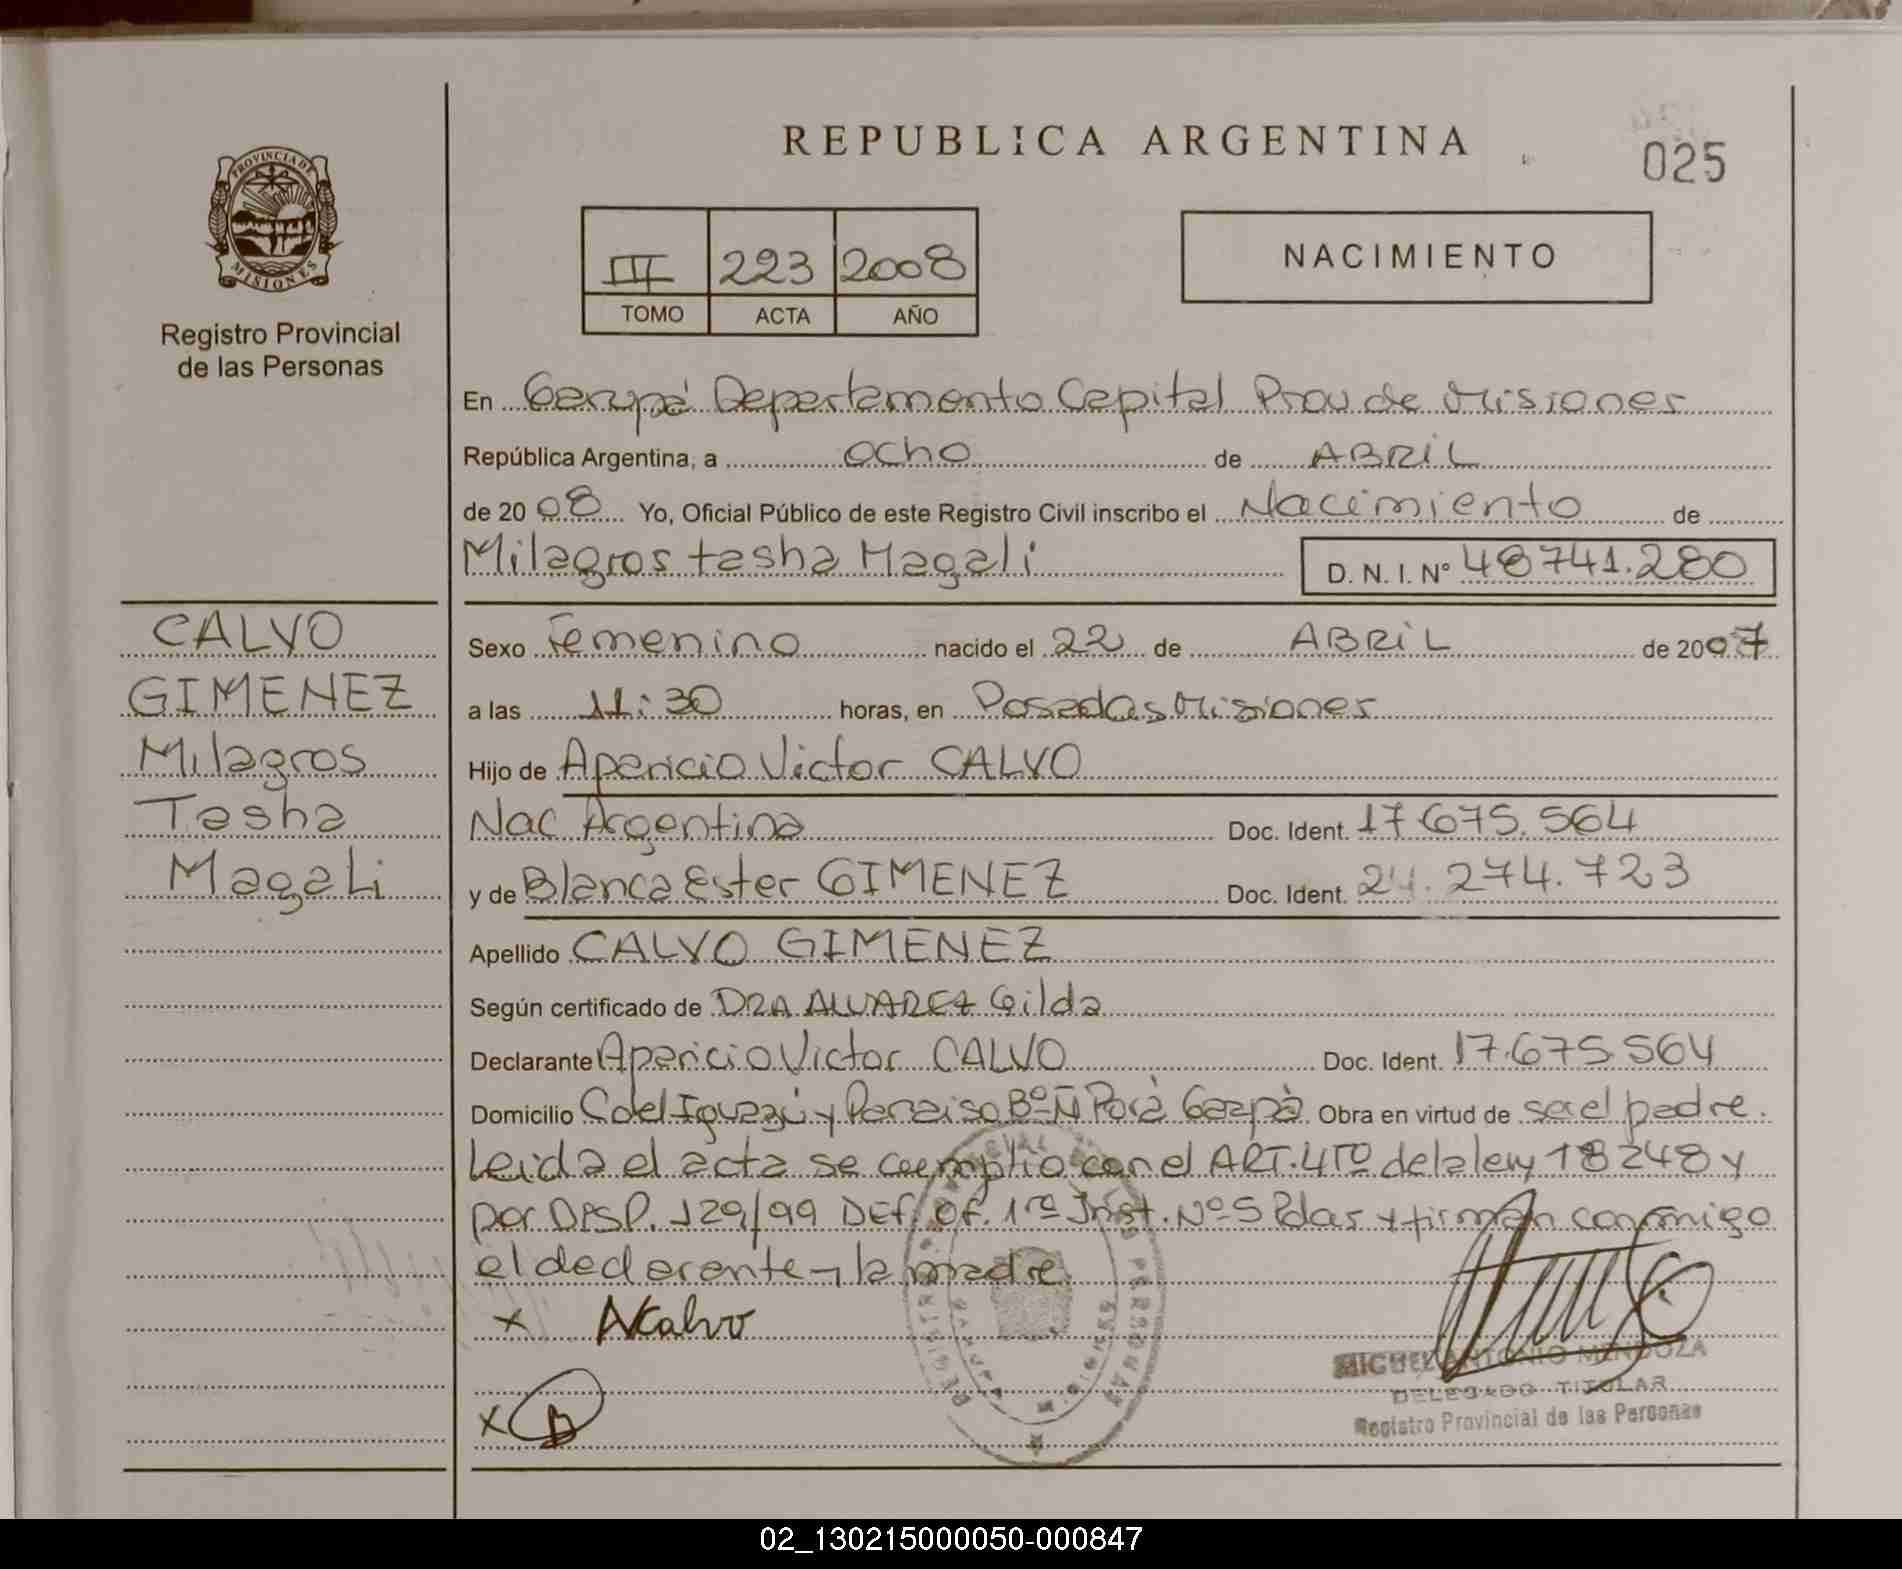 REPUBLICA ARGENTINA
025
PROVINCIA DE
MISIONES
Registro Provincial
de las Personas
III 223 2008
TOMO ACTA AÑO
NACIMIENTO
En Garupá Departamento Capital Prov de Misiones
República Argentina, a ocho de ABRIL
de 20 08 Yo, Oficial Público de este Registro Civil inscribo el Nacimiento de
Milagros tasha Magali D. N. I. Nº 48741.280
CALVO
GIMENEZ
Milagros
Tasha
Magali
Sexo Femenino nacido el 22 de ABRIL de 2007
a las 11:30 horas, en Posadas Misiones
Hijo de Aparicio Victor CALVO
Nac Argentina Doc. Ident. 17.675.564
y de Blanca Ester GIMENEZ Doc. Ident. 24.274.723
Apellido CALVO GIMENEZ
Según certificado de DRA ALVAREZ Gilda
Declarante Aparicio Victor CALVO Doc. Ident. 17.675.564
Domicilio C del Iguazú y Paraiso Bº Ñ Porà Garpà Obra en virtud de ser el padre.
Leida el acta se cumplio con el ART. 4TO de la ley 18248 y
por DISP. 129/99 DEF. Of. 1ra Inst. Nº 5 Pdas y firman conmigo
el declarante y la madre.
x AVCalvo
x B
MIGUEL ANTONIO MENDOZA
DELEGADO TITULAR
Registro Provincial de las Personas
02_130215000050-000847